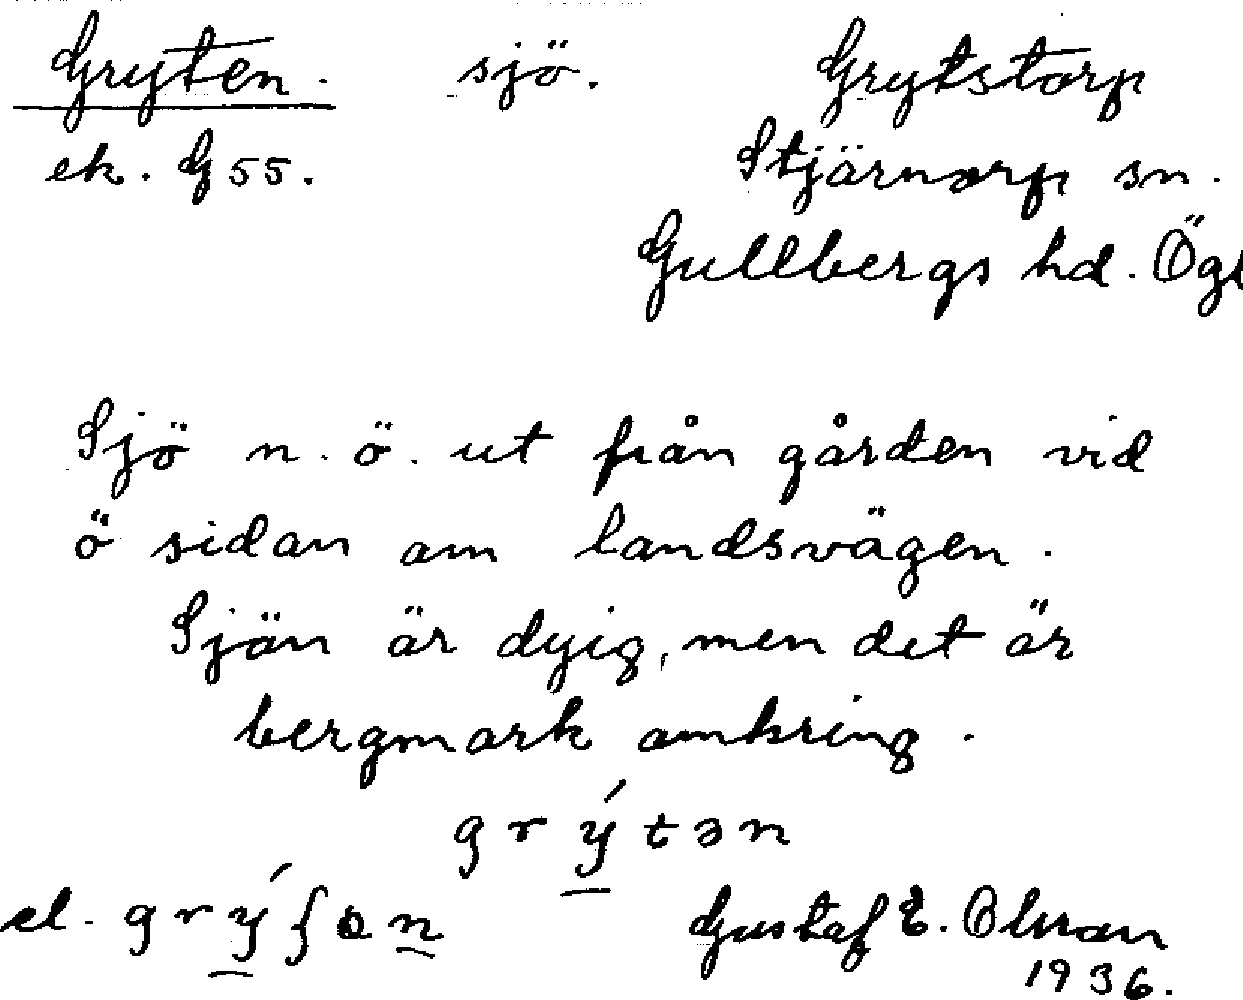 Gryten. sjö. Grytstorp
ek. G 55. Stjärnorp sn.
Gullbergs hd. Ögl
Sjö n. ö. ut från gården vid
ö sidan om landsvägen.
Sjön är dyig, men det är
bergmark omkring.
grýtən
el. grý
Gustaf E. Olsson
1936.